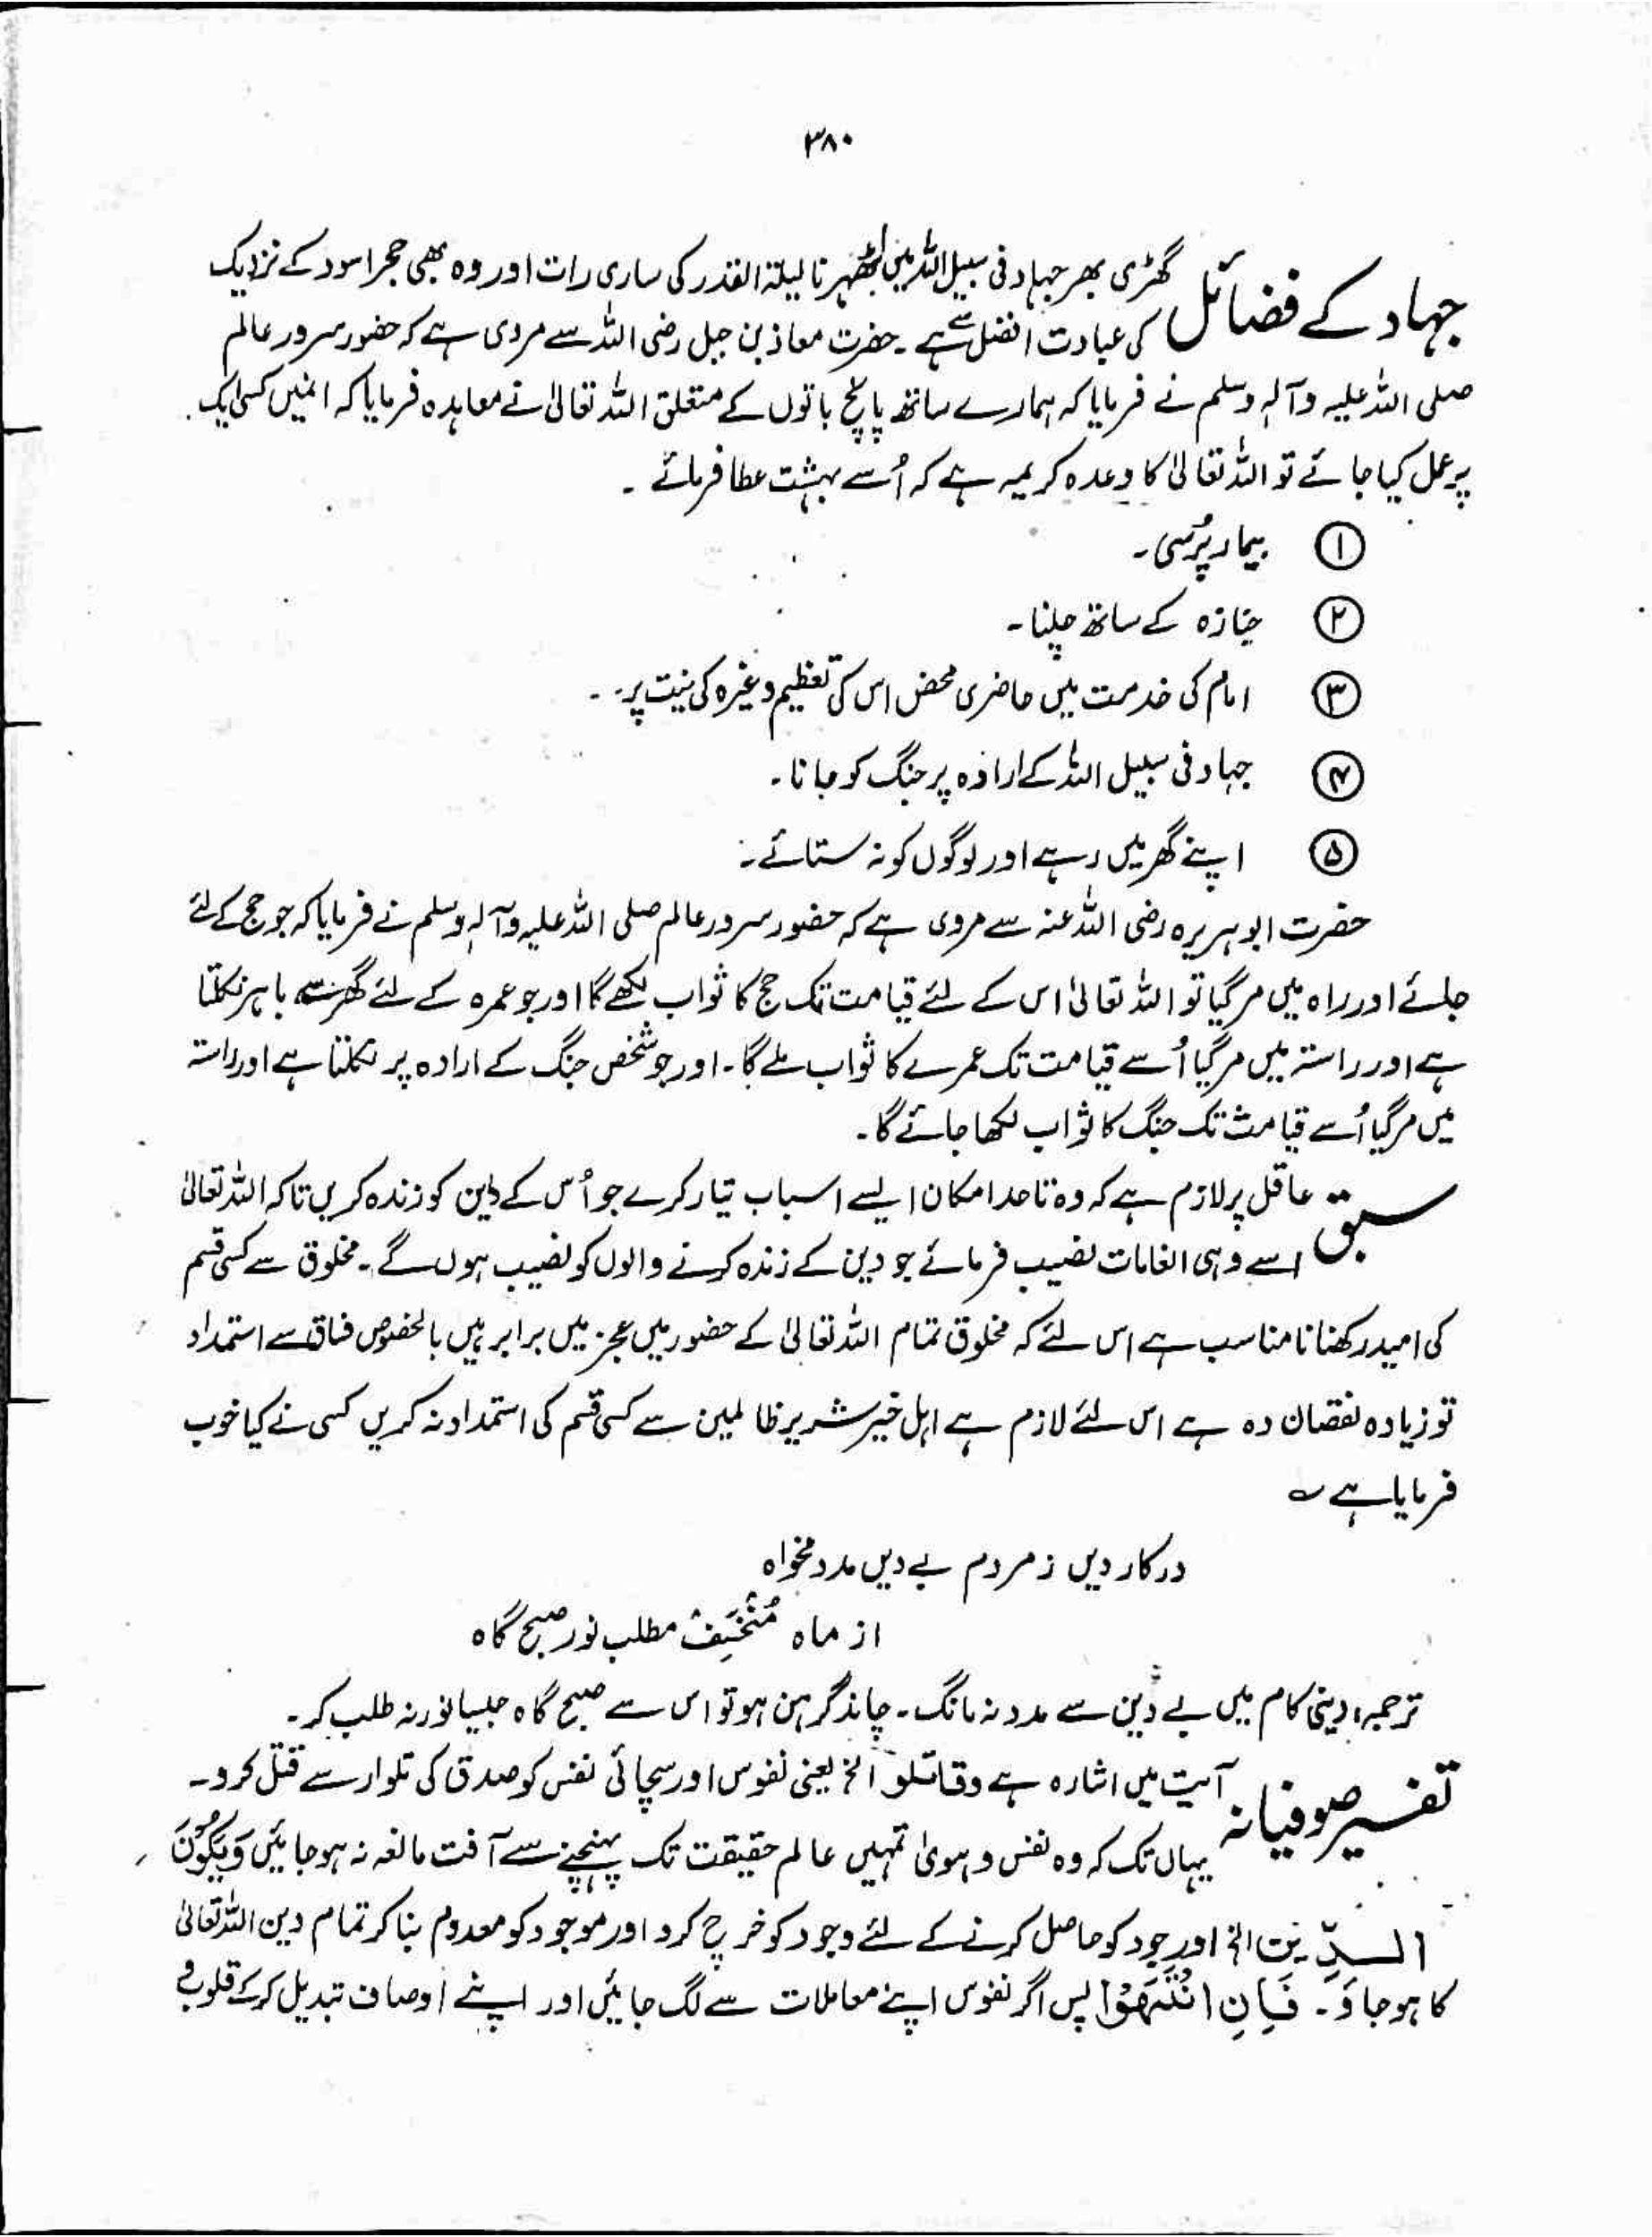 ۳۸۰
جہاد کے فضائل گھڑی بھر جہاد فی سبیل اللہ میں ٹھہرنا لیلۃ القدر کی ساری رات اور وہ بھی حجر اسود کے نزدیک
کی عبادت سے افضل ہے۔ حضرت معاذ بن جبل رضی اللہ سے مروی ہے کہ حضور سرور عالم
صلی اللہ علیہ وآلہٖ وسلم نے فرمایا کہ ہمارے ساتھ پانچ باتوں کے متعلق اللہ تعالیٰ نے معاہدہ فرمایا کہ انہیں کسی ایک
پر عمل کیا جائے تو اللہ تعالیٰ کا وعدہ کریمہ ہے کہ اُسے بہشت عطا فرمائے۔
① بیمار پُرسی۔
② جنازہ کے ساتھ چلنا۔
③ امام کی خدمت میں حاضری محض اس کی تعظیم وغیرہ کی نیت پر۔
④ جہاد فی سبیل اللہ کے ارادہ پر جنگ کو جانا۔
⑤ اپنے گھر میں رہے اور لوگوں کو نہ ستائے۔
حضرت ابو ہریرہ رضی اللہ عنہ سے مروی ہے کہ حضور سرور عالم صلی اللہ علیہ وآلہٖ وسلم نے فرمایا کہ جو حج کے لئے
جائے اور راہ میں مر گیا تو اللہ تعالیٰ اس کے لئے قیامت تک حج کا ثواب لکھے گا اور جو عمرہ کے لئے گھر سے باہر نکلتا
ہے اور راستہ میں مر گیا اُسے قیامت تک عمرے کا ثواب ملے گا۔ اور جو شخص جنگ کے ارادہ پر نکلتا ہے اور راستہ
میں مر گیا اُسے قیامت تک جنگ کا ثواب لکھا جائے گا۔
سبق عاقل پر لازم ہے کہ وہ تا حد امکان ایسے اسباب تیار کرے جو اُس کے دین کو زندہ کریں تاکہ اللہ تعالیٰ
اسے وہی انعامات نصیب فرمائے جو دین کے زندہ کرنے والوں کو نصیب ہوں گے۔ مخلوق سے کسی قسم
کی امید رکھنا نامناسب ہے اس لئے کہ مخلوق تمام اللہ تعالیٰ کے حضور میں عجز میں برابر ہیں بالخصوص فساق سے استمداد
تو زیادہ نقصان دہ ہے اس لئے لازم ہے اہل خیر شریر ظالمین سے کسی قسم کی استمداد نہ کریں کسی نے کیا خوب
فرمایا ہے ؎
در کار دیں ز مردم بے دیں مدد مخواہ
از ماہ مُنْخَسِف مطلب نور صبح گاہ
ترجمہ؛ دینی کام میں بے دین سے مدد نہ مانگ۔ چاند گرہن ہو تو اس سے صبح گاہ جیسا نور نہ طلب کر۔
تفسیر صوفیانہ آیت میں اشارہ ہے وقاتلو الخ یعنی نفوس اور سچائی نفس کو صدق کی تلوار سے قتل کرو۔
یہاں تک کہ وہ نفس و ہویٰ تمہیں عالم حقیقت تک پہنچنے سے آفت مانعہ نہ ہو جائیں وَيَكُوْنَ
الدِّيْنُ الخ اور جود کو حاصل کرنے کے لئے وجود کو خرچ کرو اور موجود کو معدوم بنا کر تمام دین اللہ تعالیٰ
کا ہو جاؤ۔ فَاِنِ انْتَهَوْا پس اگر نفوس اپنے معاملات سے لگ جائیں اور اپنے اوصاف تبدیل کر کے قلوب و